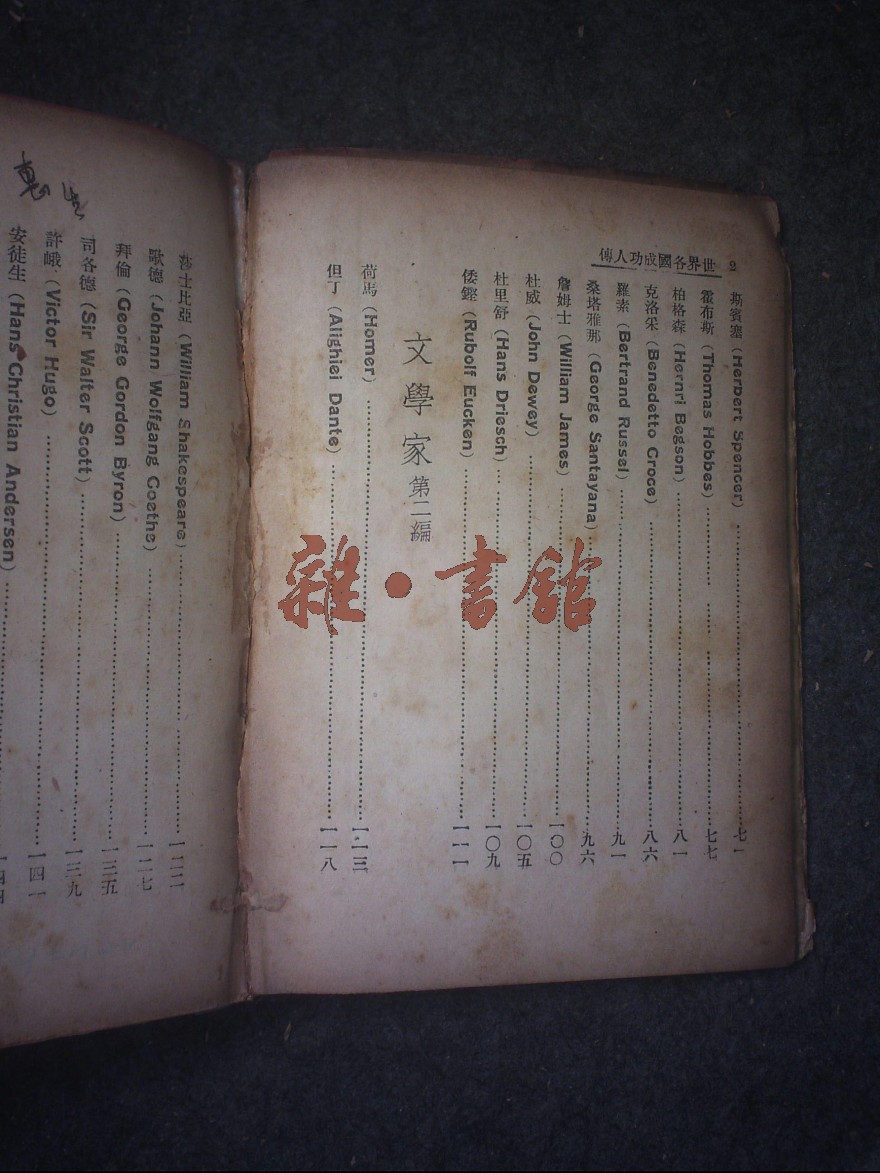 2 世界各國成功人傳
斯賓塞 (Herbert Spencer)……七一
霍布斯 (Thomas Hobbes)……七七
柏格森 (Hernri Begson)……八一
克洛采 (Benedetto Croce)……八六
羅素 (Bertrand Russel)……九一
桑塔雅那 (George Santayana)……九六
詹姆士 (William James)……一〇〇
杜威 (John Dewey)……一〇五
杜里舒 (Hans Driesch)……一〇九
倭鏗 (Rubolf Eucken)……一一一
文學家 第二編
荷馬 (Homer)……一一三
但丁 (Alighiei Dante)……一一八
莎士比亞 (William Shakespeare)……一二二
歌德 (Johann Wolfgang Coethe)……一二七
拜倫 (George Gordon Byron)……一三五
司各德 (Sir Walter Scott)……一三九
許峨 (Victor Hugo)……一四一
安徒生 (Hans Christian Andersen)……一四四
雜·書館